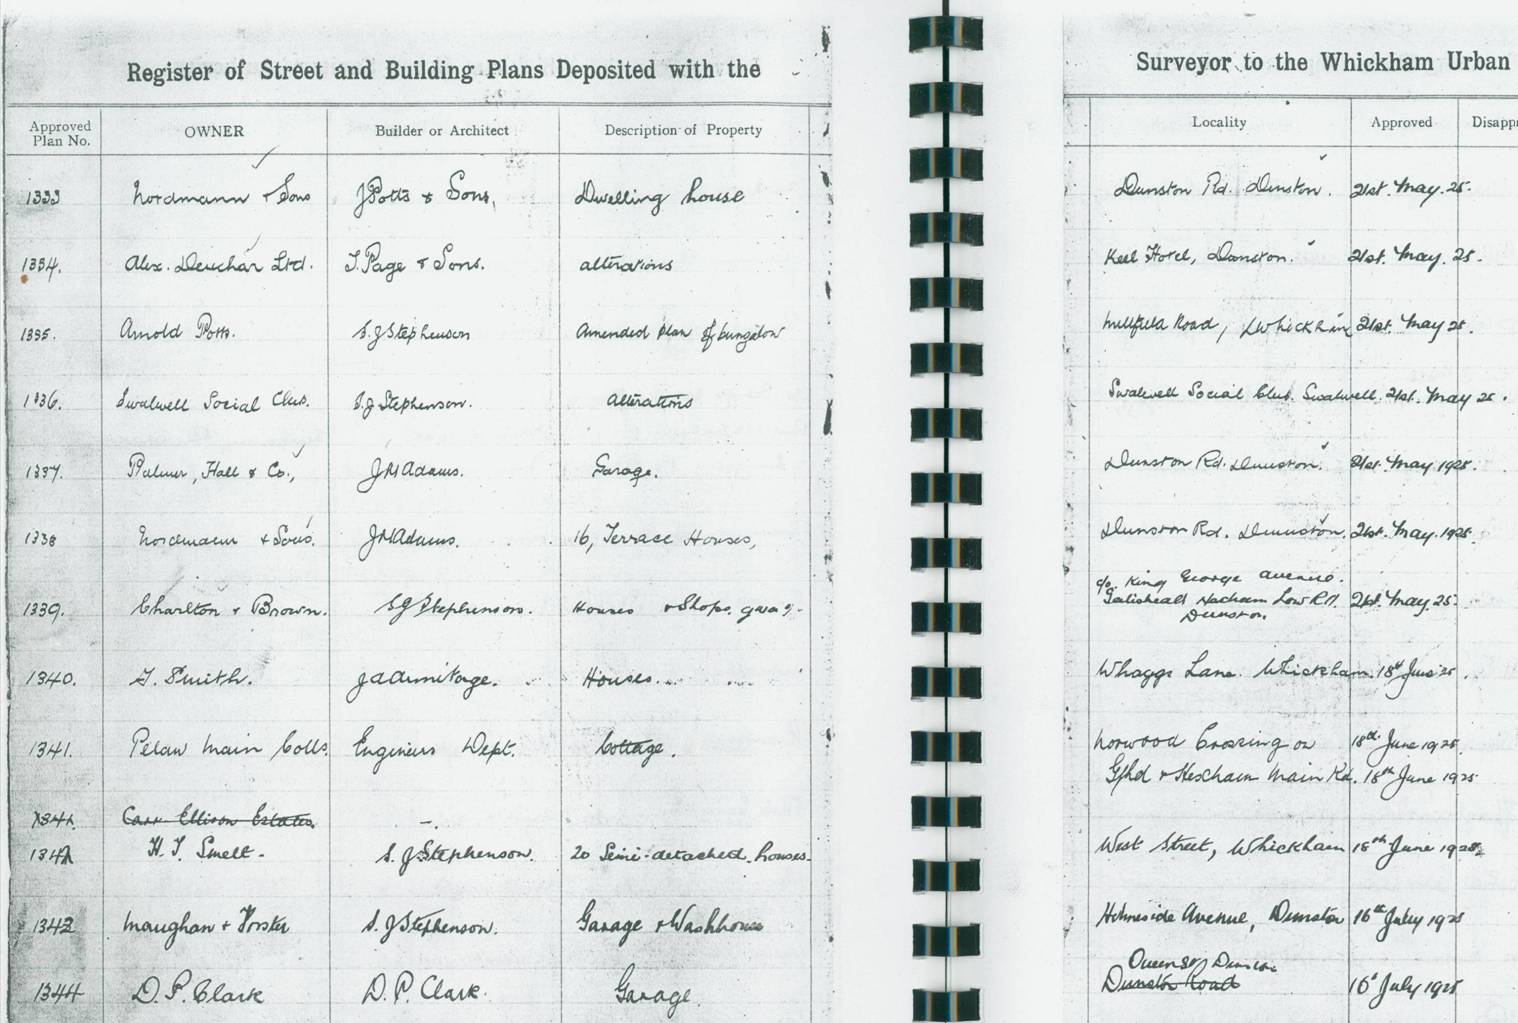 Register of Street and Building Plans Deposited with the Surveyor to the Whickham Urban
Approved Plan No. OWNER Builder or Architect Description of Property Locality Approved Disappr
1333 Nordmann & Sons J Potts & Sons, Dwelling house Dunston Rd. Dunston. 21st. May. 25.
1334. Alex. Deuchar Ltd. T. Page & Sons. alterations Keel Hotel, Dunston. 21st. May. 25.
1335. Arnold Potts. S. J Stephenson Amended plan of bungalow Millfield Road, Whickham 21st. May 25.
1336. Swalwell Social Club. S. J Stephenson. alterations Swalwell Social Club. Swalwell. 21st. May 25.
1337. Palmer, Hall & Co., J H Adams. Garage. Dunston Rd. Dunston. 21st. May 1925.
1338 Nordmann & Sons. J H Adams. 16, Terrace Houses, Dunston Rd. Dunston. 21st. May. 1925.
1339. Charlton & Brown. S J Stephenson. Houses & Shops.
c/o King George Avenue.
Gateshead Hexham Low Rd. 21st. May. 25.
Dunston.
1340. T. Smith. J A Armitage. Houses. Whaggs Lane. Whickham. 18th June 25.
1341. Pelaw Main Colls. Engineers Dept. Cottage. Norwood Crossing on 18th June 1925.
Gthd & Hexham Main Rd. 18th June 1925
1341. Carr Ellison Estates. —.
1342 H. T. Smelt. S. J Stephenson. 20 Semi-detached houses. West Street, Whickham 18th June 1925.
1343 Maughan & Forster S. J Stephenson. Garage & Washhouse Holmeside Avenue, Dunston 16th July 1925
Queens Dunston
1344 D. P. Clark D. P. Clark. Garage. Dunston Road 16th July 1925